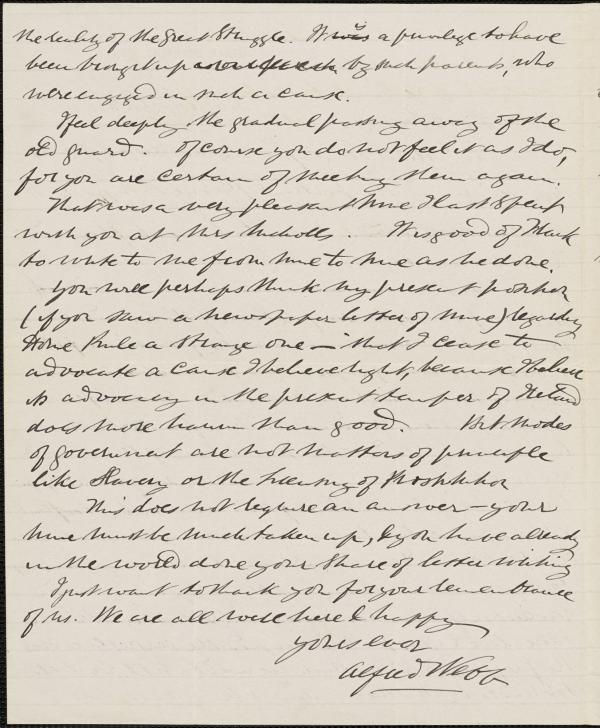 the reality of the Great Struggle. It was a privilege to have
been brought up by such parents, who
were engaged in such a cause.
I feel deeply the gradual passing away of the
old guard. Of course you do not feel it as I do,
for you are certain of meeting them again.
That was a very pleasant time I last spent
with you at Mrs Nicholls. It is good of Frank
to write to me from time to time as he does.
You will perhaps think my present position
(if you saw a newspaper letter of mine) regarding
Home Rule a strange one — that I cease to
advocate a cause I believe right, because I believe
its advocacy in the present temper of Ireland
does more harm than good. But modes
of government are not matters of principle
like Slavery or the licensing of Prostitution
This does not require an answer — your
time must be much taken up, & you have already
in the world done your share of letter writing
I just want to thank you for your remembrance
of us. We are all well here & happy
yours ever
Alfred Webb